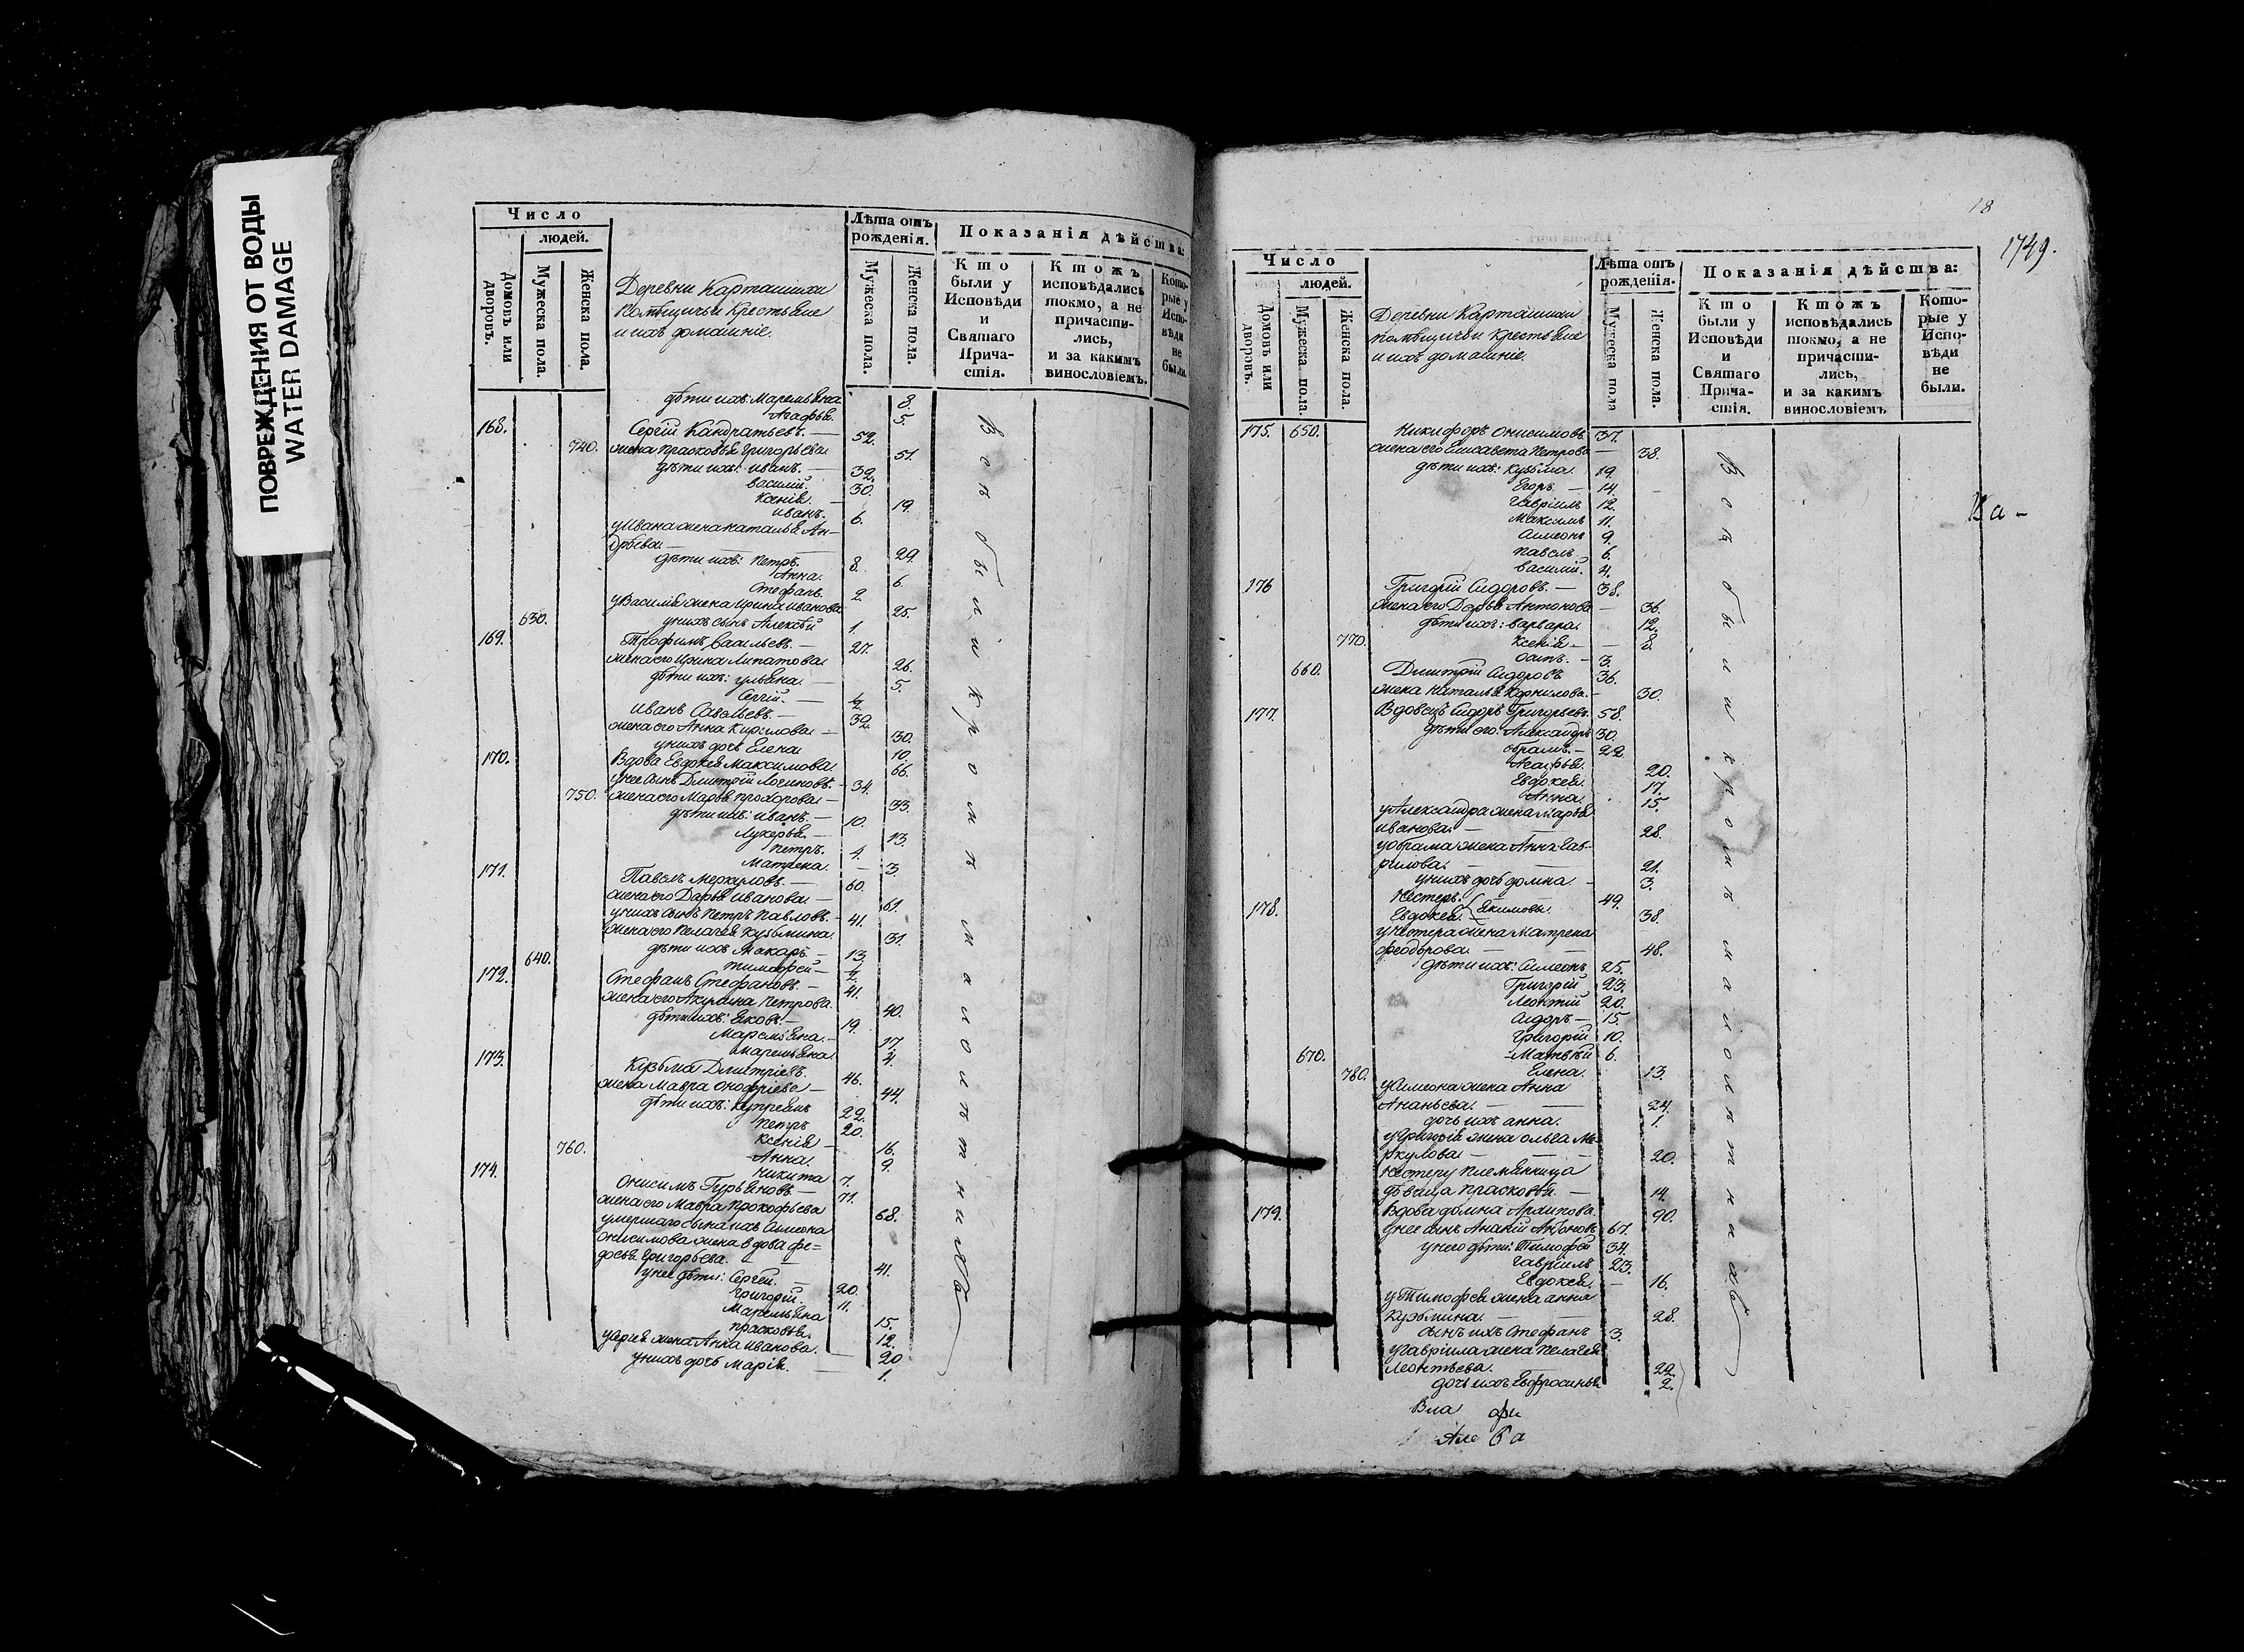 ПОВРЕЖДЕНИЯ ОТ ВОДЫ
WATER DAMAGE
Число
людей.
Домовъ или дворовъ.
Мужеска пола.
Женска пола.
Деревни Карташихи
помѣщичьи крестьяне
и ихъ домашніе.
Лѣта отъ рожденія.
Мужеска пола.
Женска пола.
Показанія дѣйства:
Кто были у Исповѣди и Святаго Причастія.
Ктожъ исповѣдались токмо, а не причастились, и за какимъ винословіемъ.
Которые у Исповѣди не были.
дѣти ихъ: Маремьяна 8.
Агафья. 5.
168. Сергій Кандратьевъ. — 52.
740. жена Прасковья Григорьева 51.
дѣти ихъ: Иванъ. — 32.
Василій. 30.
Ксенія. — 19.
Иванъ. 6.
у Ивана жена Наталья Ан-
дрѣева — 29.
дѣти ихъ: Петръ. 8.
Анна. 6.
Стефанъ. 2.
у Василія жена Ирина Иванова 25.
630. у нихъ сынъ Алексѣй 1.
169. Трофимъ Савельевъ. — 27.
жена его Ирина Липатова 26.
дѣти ихъ: Ульяна. — 5.
Сергій. — 1/2
Иванъ Савельевъ. — 32.
жена его Анна Кирилова — 30.
у нихъ дочь Елена 10.
170. Вдова Евдокея Максимова. 66.
у нее сынъ Дмитрій Логиновъ. — 34.
750. жена его Марья Прохорова — 33.
дѣти ихъ: Иванъ. — 10.
Лукерья. — 13.
Петръ. 4.
Матрена. — 3.
171. Павелъ Меркуловъ. — 60.
жена его Дарья Иванова — 61.
у нихъ сынъ Петръ Павловъ. — 41.
жена его Пелагея Кузьмина. 31.
дѣти ихъ Макаръ. — 13.
640. Тимофей — 1/2
172. Стефанъ Стефановъ. — 41.
жена его Акулина Петрова. 40.
дѣти ихъ: Яковъ. — 19.
Маремьяна. — 17.
Маремьяна. 4.
173. Кузьма Дмитріевъ. 46.
жена Мавра Онофріева — 44.
дѣти ихъ: Купреянъ 22.
Петръ 20.
Ксенія — 16.
760. Анна. 9.
Никита 7.
174. Онисимъ Гурьяновъ. — 71.
жена его Мавра Прокофьева 68.
умершаго сына ихъ Симеона
Онисимова жена вдова Фе=
досья Григорьева. — 41.
у нее дѣти: Сергей. — 20.
Григорій. 11.
Маремьяна 15.
Прасковья. 12.
у Сергея жена Анна Иванова. 20
у нихъ дочь Марія. — 1.
Всѣ были у исповѣди
18
1749.
Число
людей.
Домовъ или дворовъ.
Мужеска пола.
Женска пола.
Деревни Карташихи
помѣщичьи крестьяне
и ихъ домашніе.
Лѣта отъ рожденія.
Мужеска пола
Женска пола.
Показанія дѣйства:
Кто были у Исповѣди и Святаго Причастія.
Ктожъ исповѣдались токмо, а не причастились, и за какимъ винословіемъ
Которые у Исповѣди не были.
175. 650. Никифоръ Онисимовъ. 37.
жена его Елисавета Петрова — 38.
дѣти ихъ: Кузьма. 19.
Егоръ. — 14.
Гавріилъ 12.
Максимъ 11.
Симеонъ 9.
Павелъ 6.
Василій. 4.
176 Григорій Сидоровъ. — 38.
жена его Дарья Антонова — 36.
дѣти ихъ: Варвара. 12.
770. Ксенія — 8.
Осипъ. — 3.
660. Дмитрій Сидоровъ 36.
жена Наталья Корнилова. — 30.
177. Вдовецъ Сидоръ Григорьевъ. 58.
дѣти его: Александръ 30.
Абрамъ. — 22.
Агафья. 20.
Евдокея. 17.
Анна. 15.
у Александра жена Марья
Иванова. — 28.
у Абрама жена Анна Гав-
рилова. — 21.
у нихъ дочь Домна. — 3.
178. Нестеръ. 49.
Евдокея. } Якимовы. 38.
у Нестера жена Матрена
Феодорова. — 48.
дѣти ихъ: Симеонъ 25.
Григорій 23.
Леонтій 20.
Сидоръ — 15.
Григорій 10.
670. Матвѣй 6.
Елена. 13.
780. у Симеона жена Анна
Ананьева. — 24.
дочь ихъ Анна. 1.
у Григорія жена Ольга Ме-
ркулова — 20.
Нестеру племянница
дѣвица Прасковья. — 14.
179. Вдова Домна 90.
у нее сынъ Ананій Антоновъ 67.
у него дѣти: Тимофей 34.
Гавріилъ 23.
Евдокея. — 16.
у Тимофея жена Анна
Кузьмина. — 28.
сынъ ихъ Стефанъ 3.
у Гавріила жена Пелагея
Леонтьева. 22.
дочь ихъ Евфросинья 2.